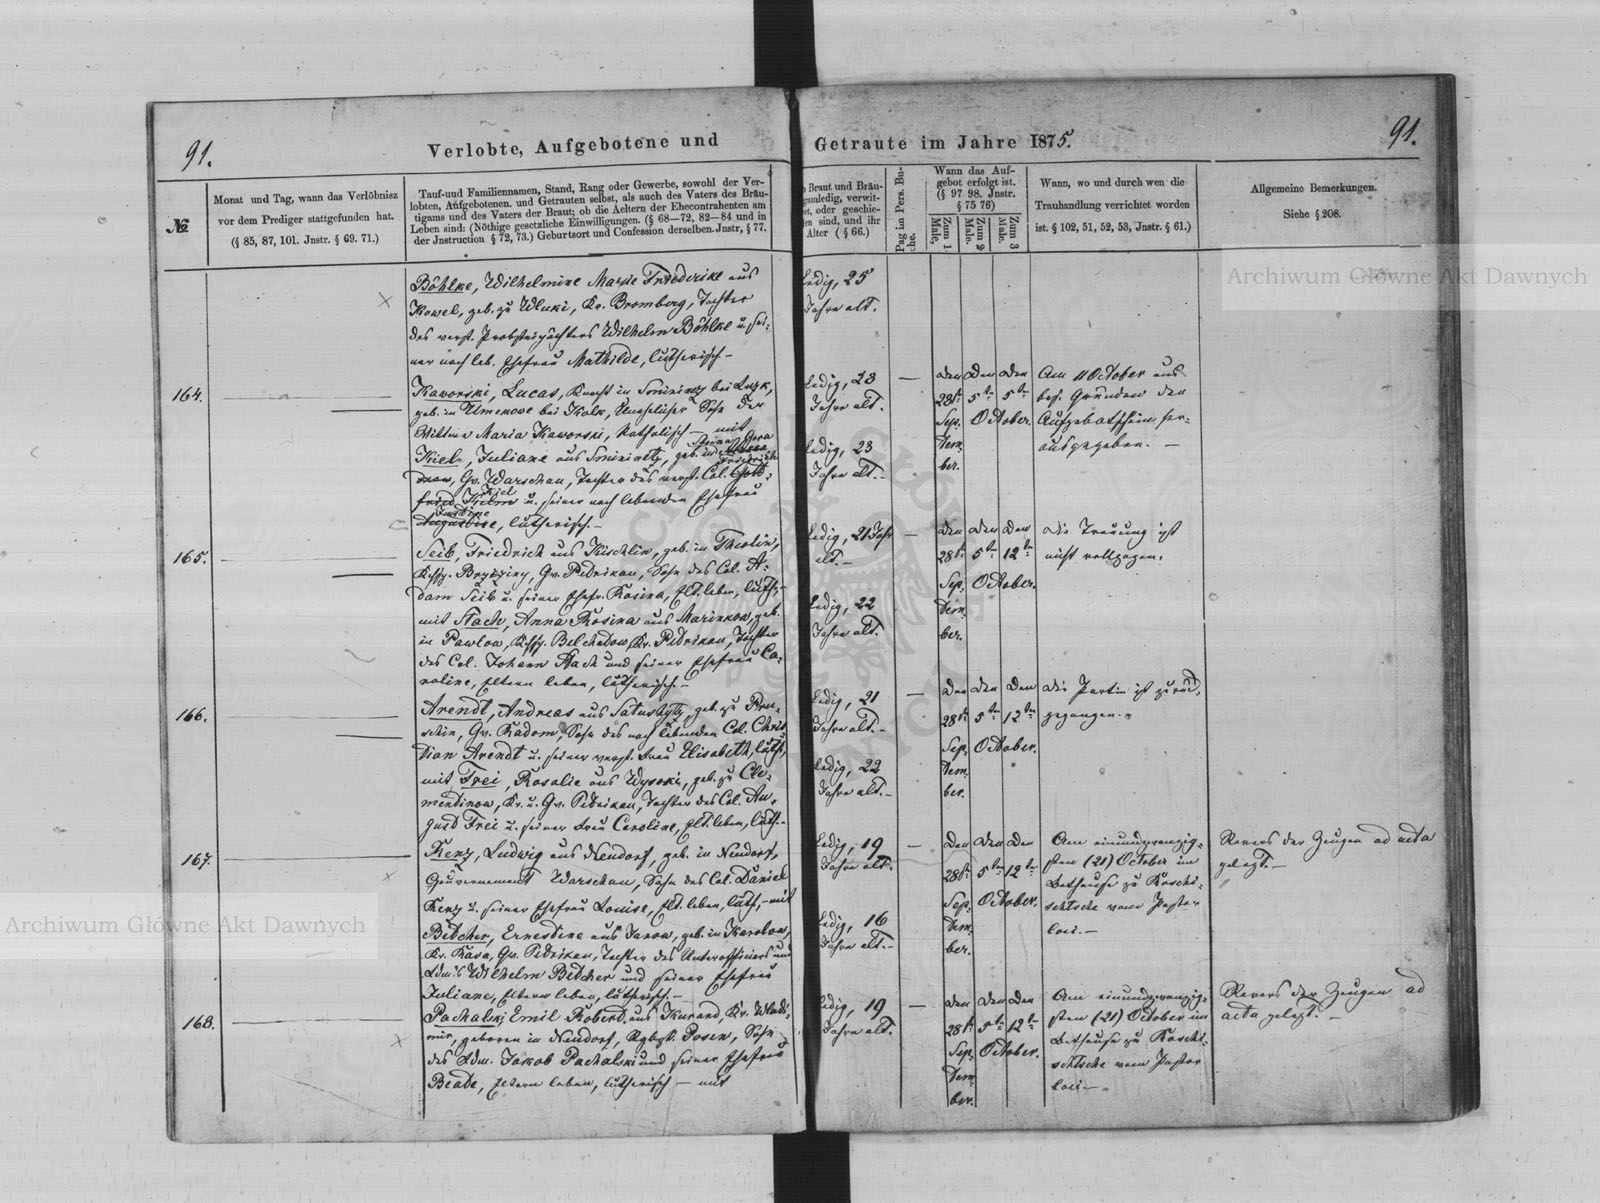 91.
Verlobte, Aufgebotene und
Getraute im Jahre 1875.
91.
№
Monat und Tag, wann das Verlöbnisz
vor dem Prediger stattgefunden hat.
(§ 85, 87, 101. Jnstr. § 69. 71.)
Tauf-und Familiennamen, Stand, Rang oder Gewerbe, sowohl der Ver-
lobten, Aufgebotenen. und Getrauten selbst, als auch des Vaters des Bräu-
tigams und des Vaters der Braut; ob die Aeltern der Ehecontrahenten am
Leben sind: (Nöthige gesetzliche Einwilligungen. (§ 68—72, 82—84 und in
der Jnstruction § 72, 73.) Geburtsort und Confession derselben. Jnstr, § 77.
Braut und Bräu-
gam ledig, verwit-
et, oder geschie-
den sind, und ihr
Alter ( § 66.)
Pag in Pers. Bu-
che.
Wann das Auf-
gebot erfolgt ist.
(§ 97 98. Jnstr.
§ 75 76)
Zum 1
Male,
Zum 2
Male.
Zum 3
Male,
Wann, wo und durch wen die
Trauhandlung verrichtet worden
ist. § 102, 51, 52, 53, Jnstr. § 61.)
Allgemeine Bemerkungen.
Siehe § 208.
Böhlke, Wilhelmine Marie Friederike aus
Kowel, geb. zu Wluki, Kr. Bromberg, Tochter
des verst. Probsteipächters Wilhelm Böhlke u. sei-
ner noch leb. Ehefrau Mathilde, lutherisch.-
ledig, 25
Jahre alt.
164.
Kaworski, Lucas, Knecht in bei Luzk,
geb. in bei Kolo, Unehelicher Sohn der
Wittwe Maria Kaworski, katholisch- mit
Kiel, Juliane aus geb. in
Gv. Warschau, Tochter des verst. Col. Gott-
fried Kiel u. seiner noch lebenden Ehefrau
Justine
Augustine, lutherisch.-
ledig, 23
Jahre alt.
ledig, 23
Jahre alt.-
den
28st.
Sep-
tem-
ber.
den
5ten
October.
den
5ten
Am 11 October aus
bes. Gründen den
Aufgebotschein her-
ausgegeben. -
165.
Seib, Friedrich aus Kischlin, geb. in
Kchsp. Brzeziny, Gv. Petrikau, Sohn des Col. A-
dam Seib u. seiner Ehefr. Rosina, Elt. leben, luth.,-
mit Stach, Anna Rosina aus Marinkow, geb.
in Pawlow, Kchsp. Belchadow, Kr. Petrikau, Tochter
des Col. Johann Stach und seiner Ehefrau Ca-
roline, Eltern leben, lutherisch.-
ledig, 21 Jahr
alt.-
ledig, 22
Jahre alt.
den
28st.
Sep-
tem-
ber.
den
5ten
October.
den
12ten
die Trauung ist
nicht vollzogen.
166.
Arendt, Andreas aus geb. zu Pru-
Gv. Radom, Sohn des noch lebenden Col. Chris-
tian Arendt u. seiner verst. Frau Elisabeth, luth.,
mit Frei, Rosalie aus Wysoki, geb. zu Cle-
mentinow, Kr. u. Gv. Petrikau, Tochter des Col. Au-
gust Frei u. seiner Frau Caroline, Elt. leben, luth.-
ledig, 21
Jahre alt.-
ledig, 22
Jahre alt.-
den
28st.
Sep-
tem-
ber.
den
5ten
October.
den
12ten
die Partie ist zurück-
gegangen.
167.
Kenz, Ludwig aus Neudorf, geb. in Neudorf,
Gouvernement Warschau, Sohn des Col. Daniel
Kenz u. seiner Ehefrau Louise, Elt. leben, luth.,- mit
Betcher, Ernestine aus Janow, geb. in Karolow,
Kr. Rava, Gv. Petrikau, Tochter des Unterofficiers und
Wilhelm Betcher und seiner Ehefrau
Juliane, Eltern leben, lutherisch.-
ledig, 19
Jahre alt.
ledig, 16
Jahre alt.-
den
28st.
Sep-
tem-
ber.
den
5te
October.
den
12te
Am einundzwanzig-
sten (21) October im
Bethause zu Roschi-
schtsche vom Pastor
loci.-
Revers der Zeugen ad acta
gelegt.-
168.
Pachalski, Emil Robert aus Kurand, Kr. Wladi-
mir, geboren in Neudorf, Rgbzk. Posen, Sohn
des Jakob Pachalski und seiner Ehefrau
Beate, Eltern leben, lutherisch- mit
ledig, 19
Jahre alt.
den
28st.
Sep-
tem-
ber.
den
5te
October.
den
12te
Am einundzwanzig-
sten (21) October im
Bethause zu Roschi-
schtsche vom Pastor
loci.-
Revers der Zeugen ad
acta gelegt.-
Archiwum Główne Akt Dawnych
Archiwum Główne Akt Dawnych